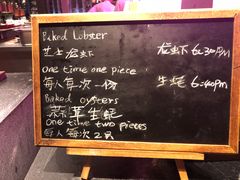 Baked Lobster
芝士龙虾 龙虾 6:30PM
one time one piece
每人每次一份 生蚝 6:40PM
Baked oysters
蒜草生蚝
one time two pieces
每人每次2只